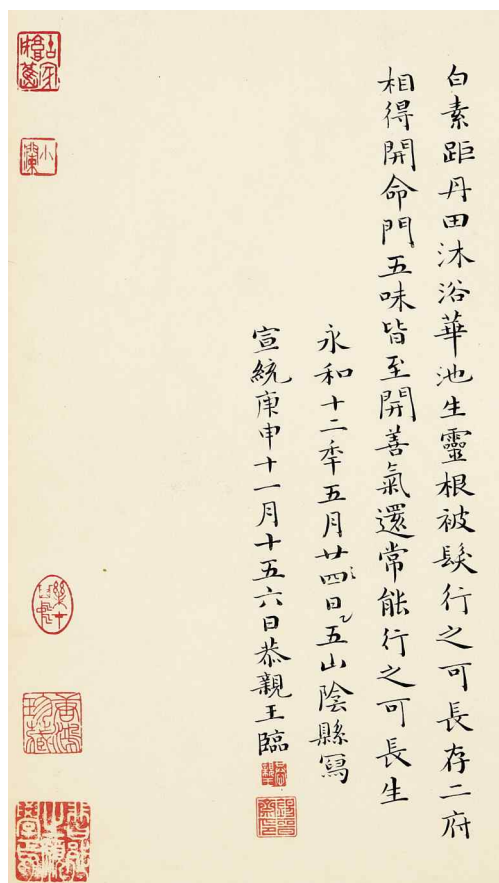 白素距丹田沐浴華池生靈根被髮行之可長存二府
相得開命門五味皆至開善氣還常能行之可長生
永和十二年五月廿四日五山陰縣寫
宣統庚申十一月十五六日恭親王臨
小瀾